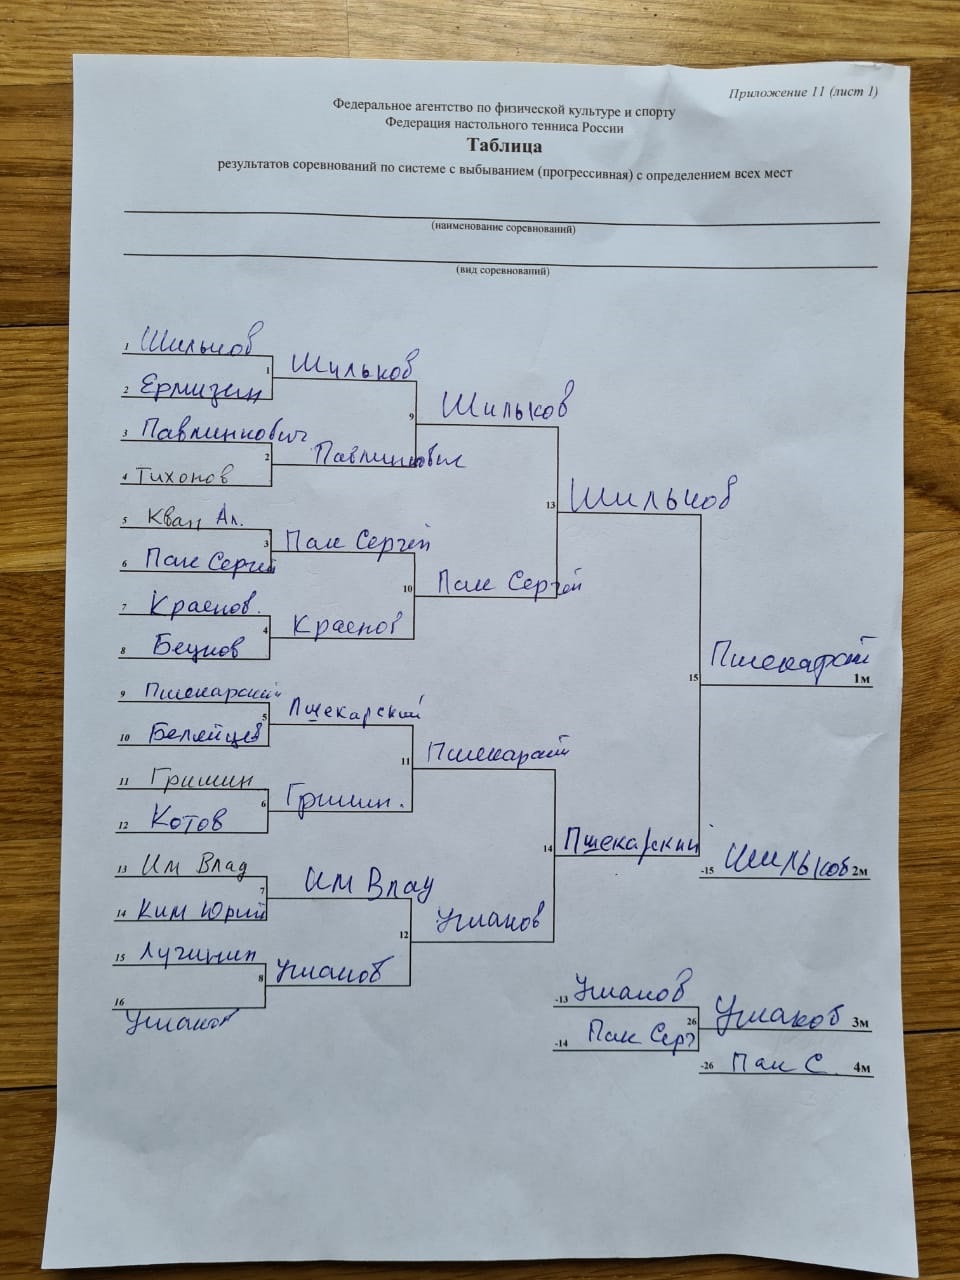 Приложение 11 (лист 1)
Федеральное агентство по физической культуре и спорту
Федерация настольного тенниса России
Таблица
результатов соревнований по системе с выбыванием (прогрессивная) с определением всех мест
(наименование соревнований)
(вид соревнований)
1 Шильков
1 Шильков
2 Ермизин
9 Шильков
3 Павлинкович
2 Павлинкович
4 Тихонов
13 Шильков
5 Кван Ал.
3 Пак Сергей
6 Пак Сергей
10 Пак Сергей
7 Краснов.
4 Краснов
8 Бецков
15 Пшекарский 1м
9 Пшекарский
5 Пшекарский
10 Беляйцев
11 Пшекарский
11 Гришин
6 Гришин.
12 Котов
14 Пшекарский
-15 Шильков 2м
13 Им Влад
7 Им Влад
14 Ким Юрий
12 Ушаков
15 Лучинин
8 Ушаков
16 Ушаков
-13 Ушаков
26 Ушаков 3м
-14 Пак Серг
-26 Пак С. 4м